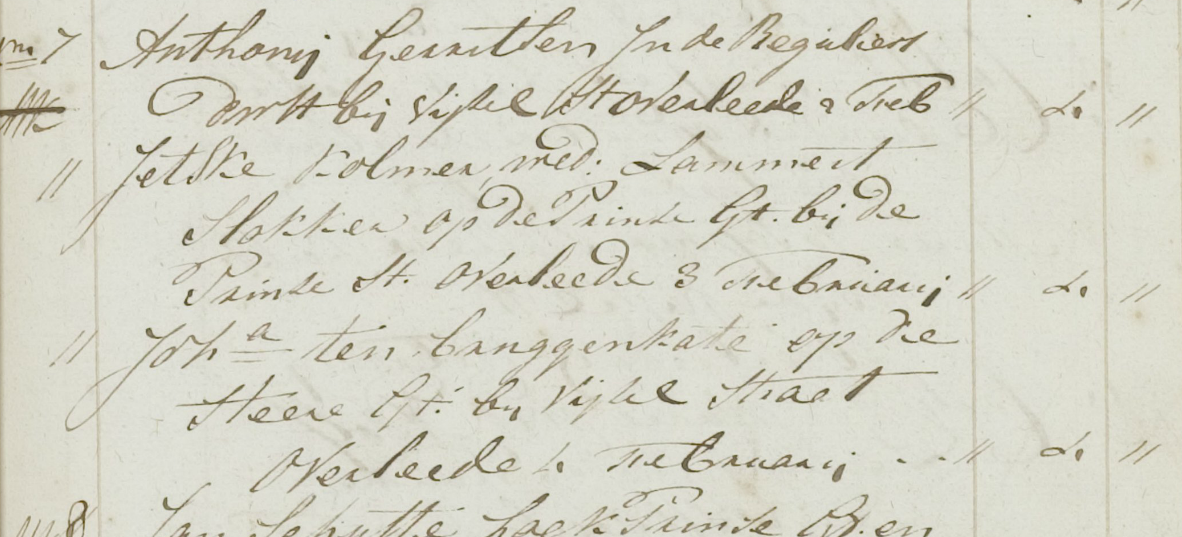 7 Anthonij Gerritsen Jn de Reguliers
Dwst bij Vijsel St overleede 2 Feb " 4 "
" Jetske Kolmer, wed: Lammert
Slokker op de Prinse Gt. bij de
Prinse St. Overleede 3 Februarij " 4 "
" Joha ten Bruggenkate op de
Heere Gt. bij Vijsel Straet
Overleede 4 Februarij - - " 4 "
8 Jan Schutte hoek Prinse Gt. en